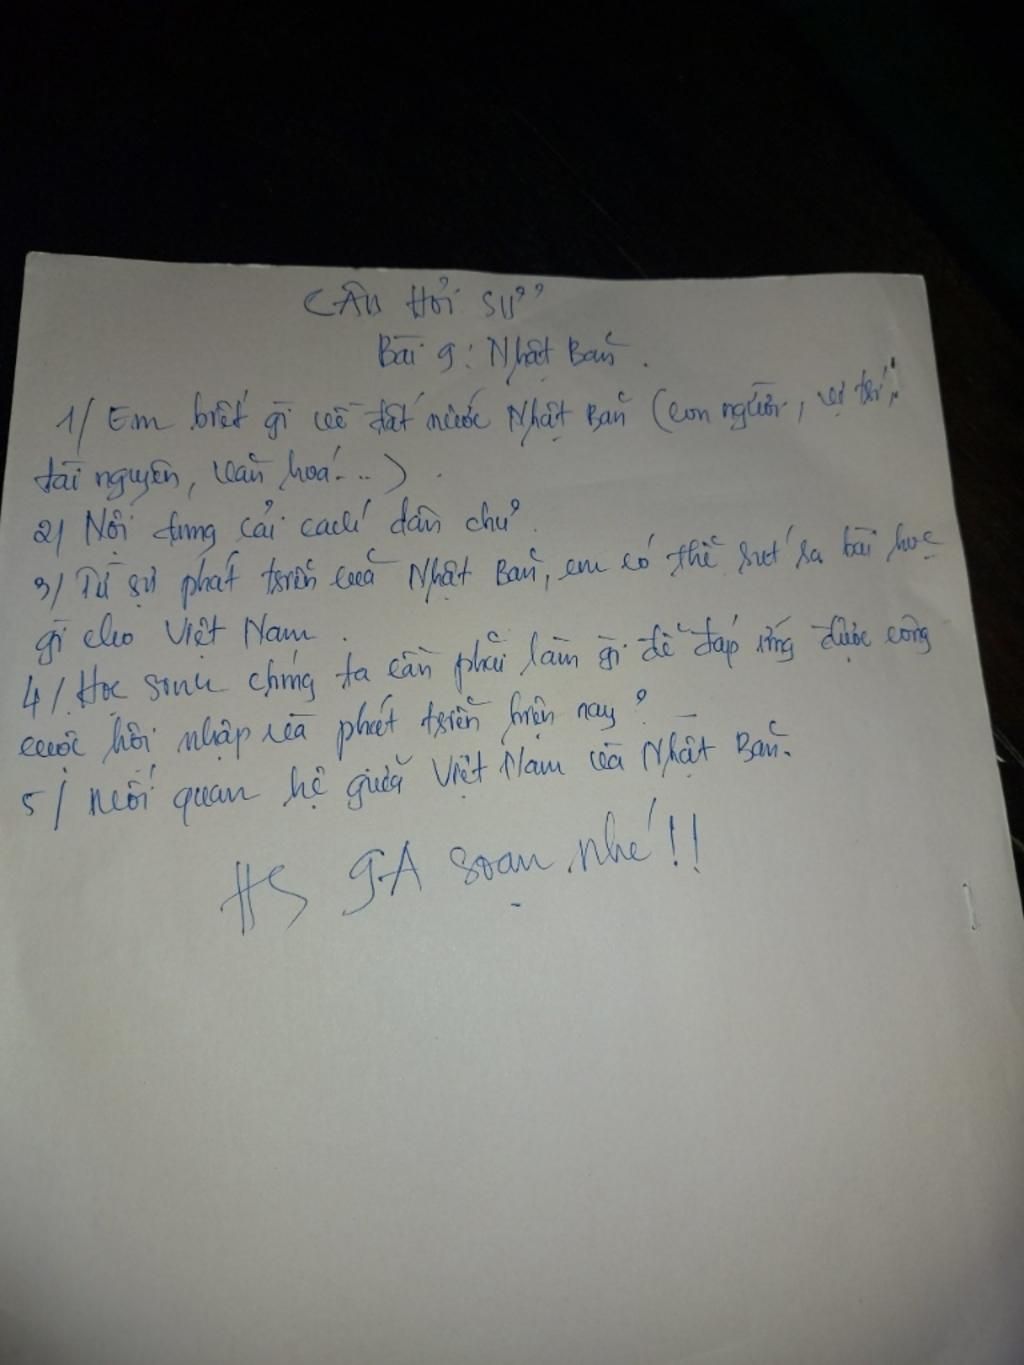 CÂU HỎI SỬ
Bài 9: Nhật Bản.
1/ Em biết gì về đất nước Nhật Bản (con người, vị trí,
tài nguyên, văn hoá...).
2/ Nội dung cải cách dân chủ.
3/ Từ sự phát triển của Nhật Bản, em có thể rút ra bài học
gì cho Việt Nam.
4/ Học sinh chúng ta cần phải làm gì để đáp ứng được công
cuộc hội nhập và phát triển hiện nay?
5/ Mối quan hệ giữa Việt Nam và Nhật Bản.
HS 9A soạn nhé!!